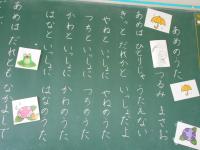 あめのうた
つるみ まさお
あめは ひとりじゃ うたえない
きっと だれかと いっしょだよ
やねと いっしょに やねのうた
つちと いっしょに つちのうた
かわと いっしょに かわのうた
はなと いっしょに はなのうた
あめは だれとも なかよしで